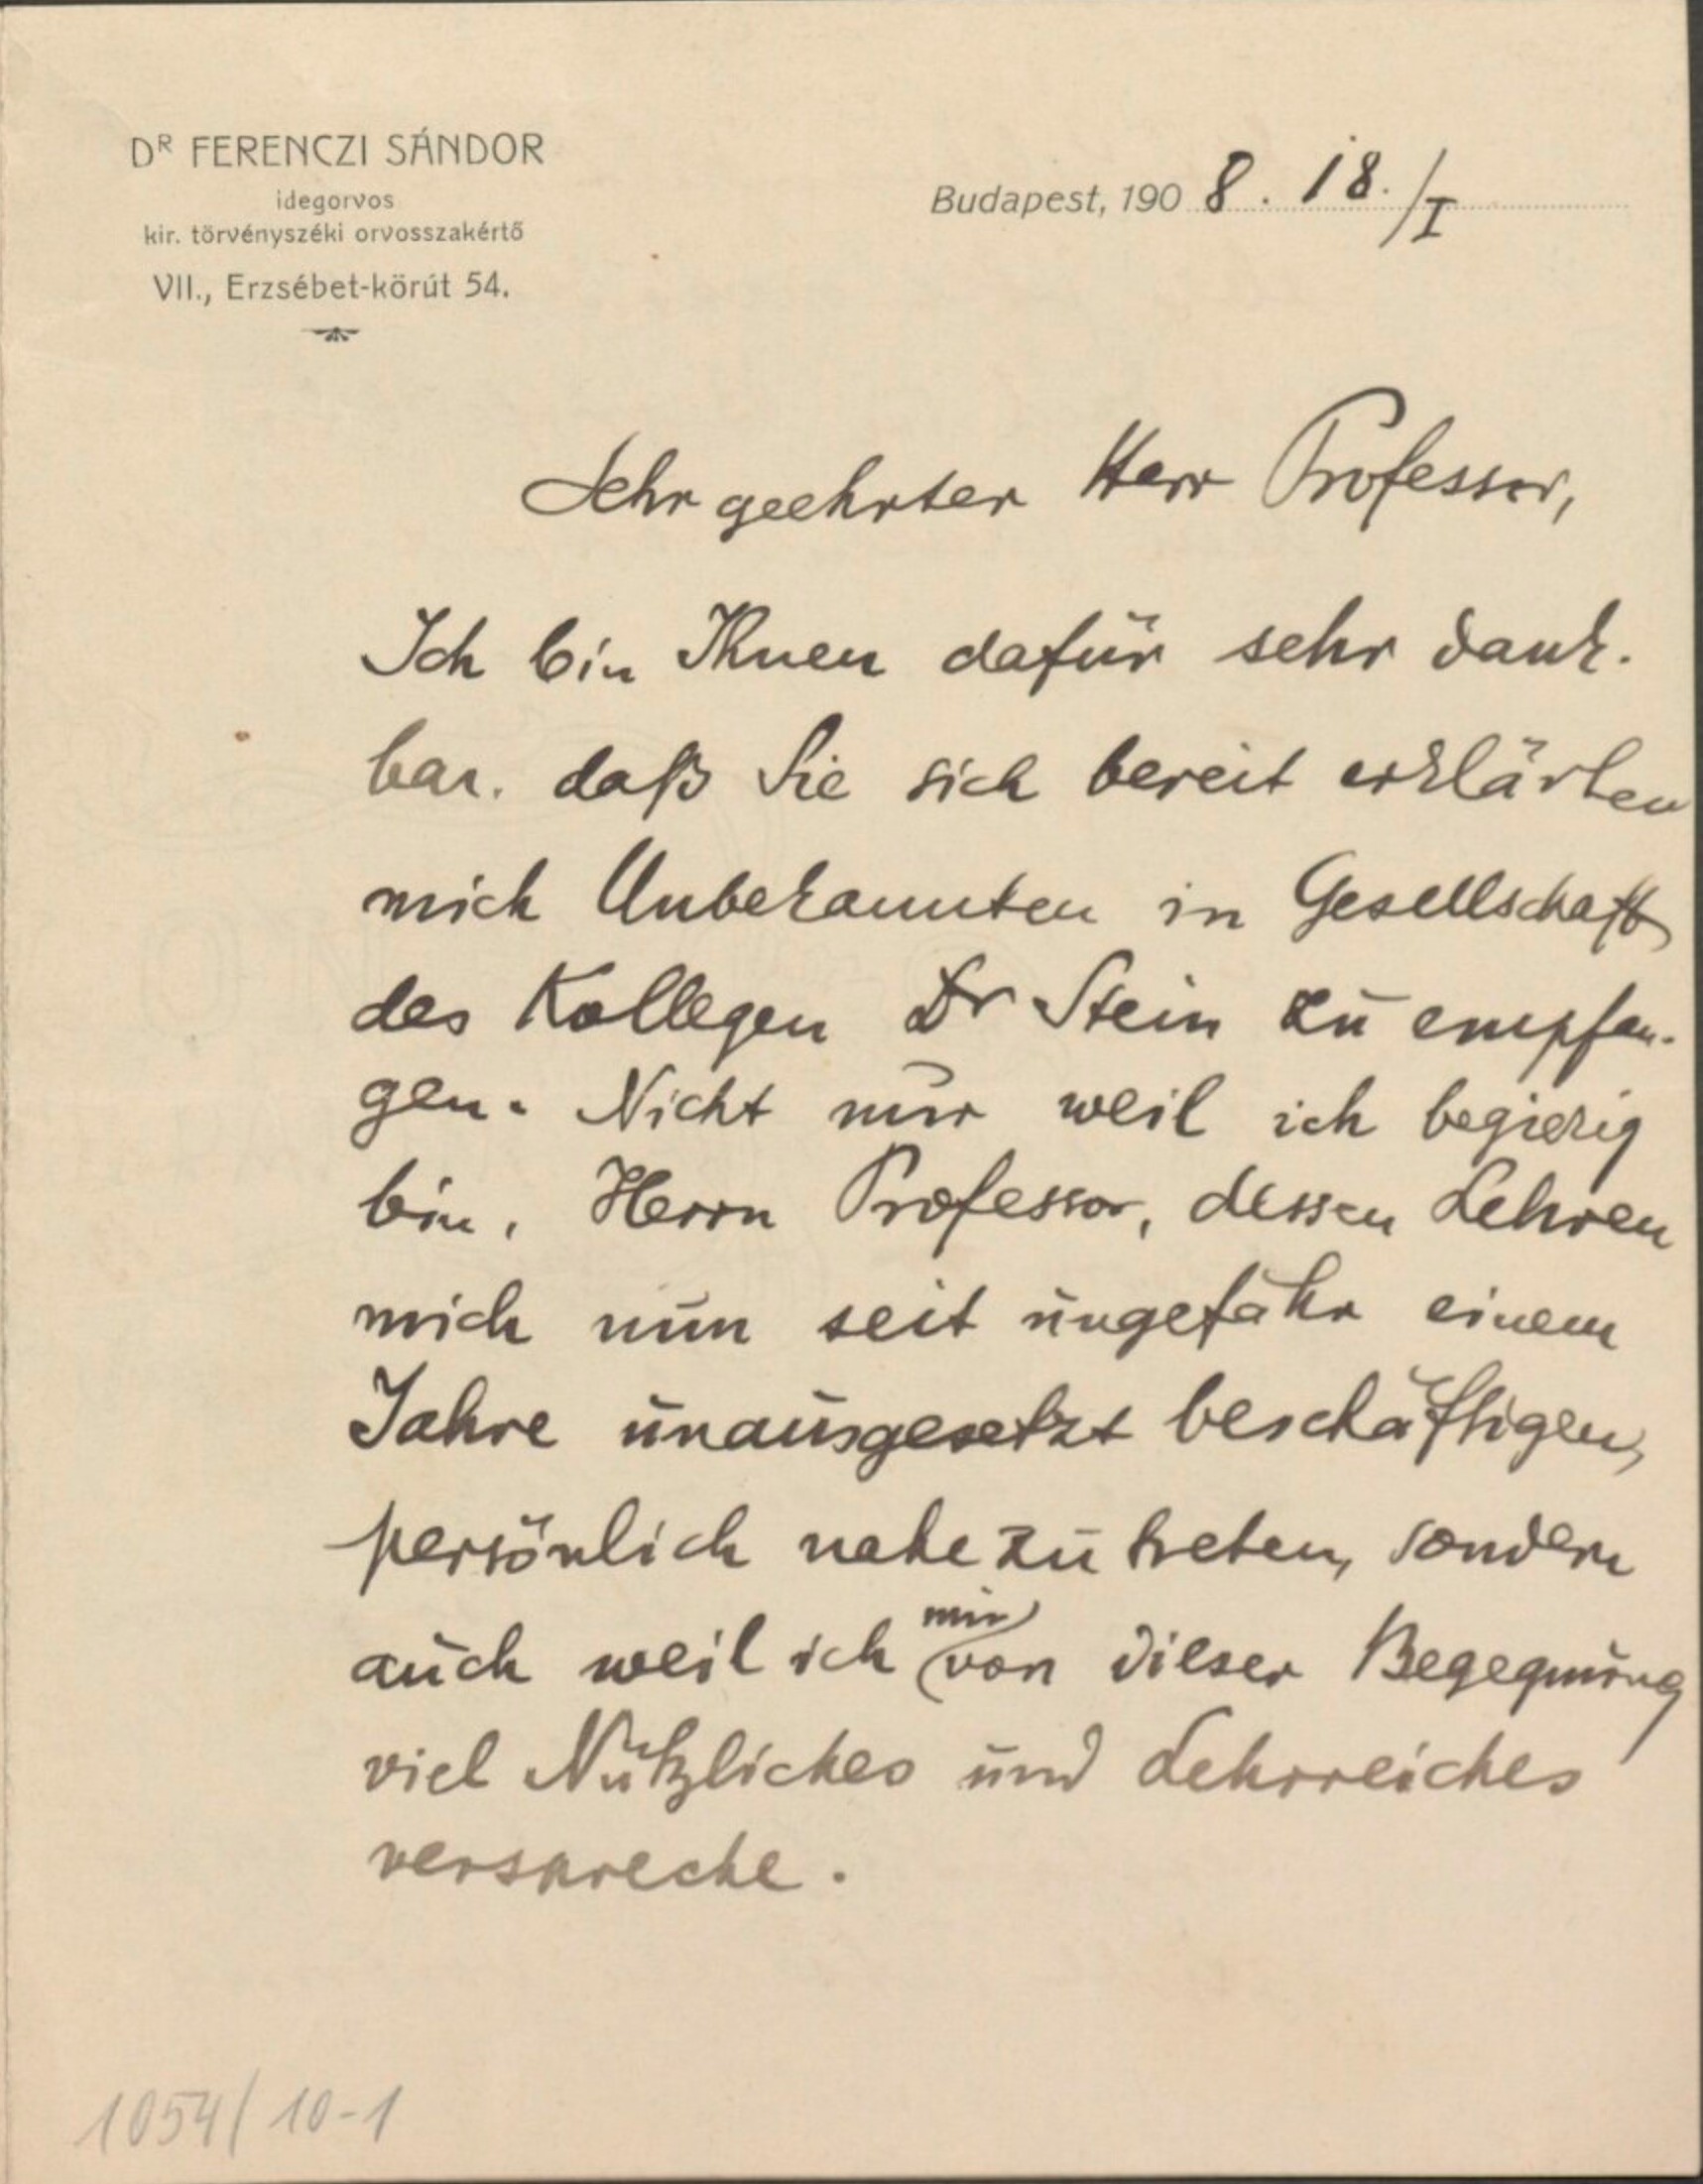 DR FERENCZI SÁNDOR
idegorvos
kir. törvényszéki orvosszakértő
VII., Erzsébet-körút 54.
Budapest, 1908. 18./I
Sehr geehrter Herr Professor,
Ich bin Ihnen dafür sehr dank-
bar, daß Sie sich bereit erklärten
mich Unbekannten in Gesellschaft
des Kollegen Dr Stein zu empfan-
gen. Nicht nur weil ich begierig
bin, Herrn Professor, dessen Lehren
mich nun seit ungefähr einem
Jahre unausgesetzt beschäftigen,
persönlich nahe zu treten, sondern
auch weil ich mir von dieser Begegnung
viel Nützliches und Lehrreiches
verspreche.
1054/10-1